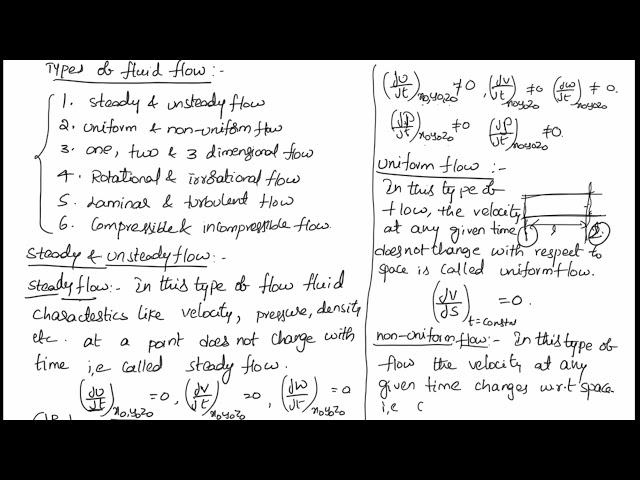 Types of fluid flow :-
1. steady & unsteady flow
2. uniform & non-uniform flow
3. one, two & 3 dimensional flow
4. Rotational & irrotational flow
5. Laminar & turbulent flow
6. Compressible & incompressible flow.
steady & unsteady flow:-
steady flow:- In this type of flow fluid
charactestics like velocity, pressure, density
etc. at a point does not change with
time i,e called steady flow.
(∂u/∂t)x0,y0,z0 = 0, (∂v/∂t)x0y0z0 = 0, (∂w/∂t)x0y0z0 = 0
(∂u/∂t)x0,y0,z0 ≠ 0, (∂v/∂t)x0y0z0 ≠ 0 (∂w/∂t)x0y0z0 ≠ 0.
(∂p/∂t)x0y0z0 ≠ 0 (∂ρ/∂t)x0y0z0 ≠ 0.
uniform flow :-
In this type of
flow, the velocity
at any given time
1 l 2
does not change with respect to
space is called uniform flow.
(∂v/∂s)t=constan = 0.
non-uniform flow:- In this type of
flow the velocity at any
given time changes w.r.t space
i,e (